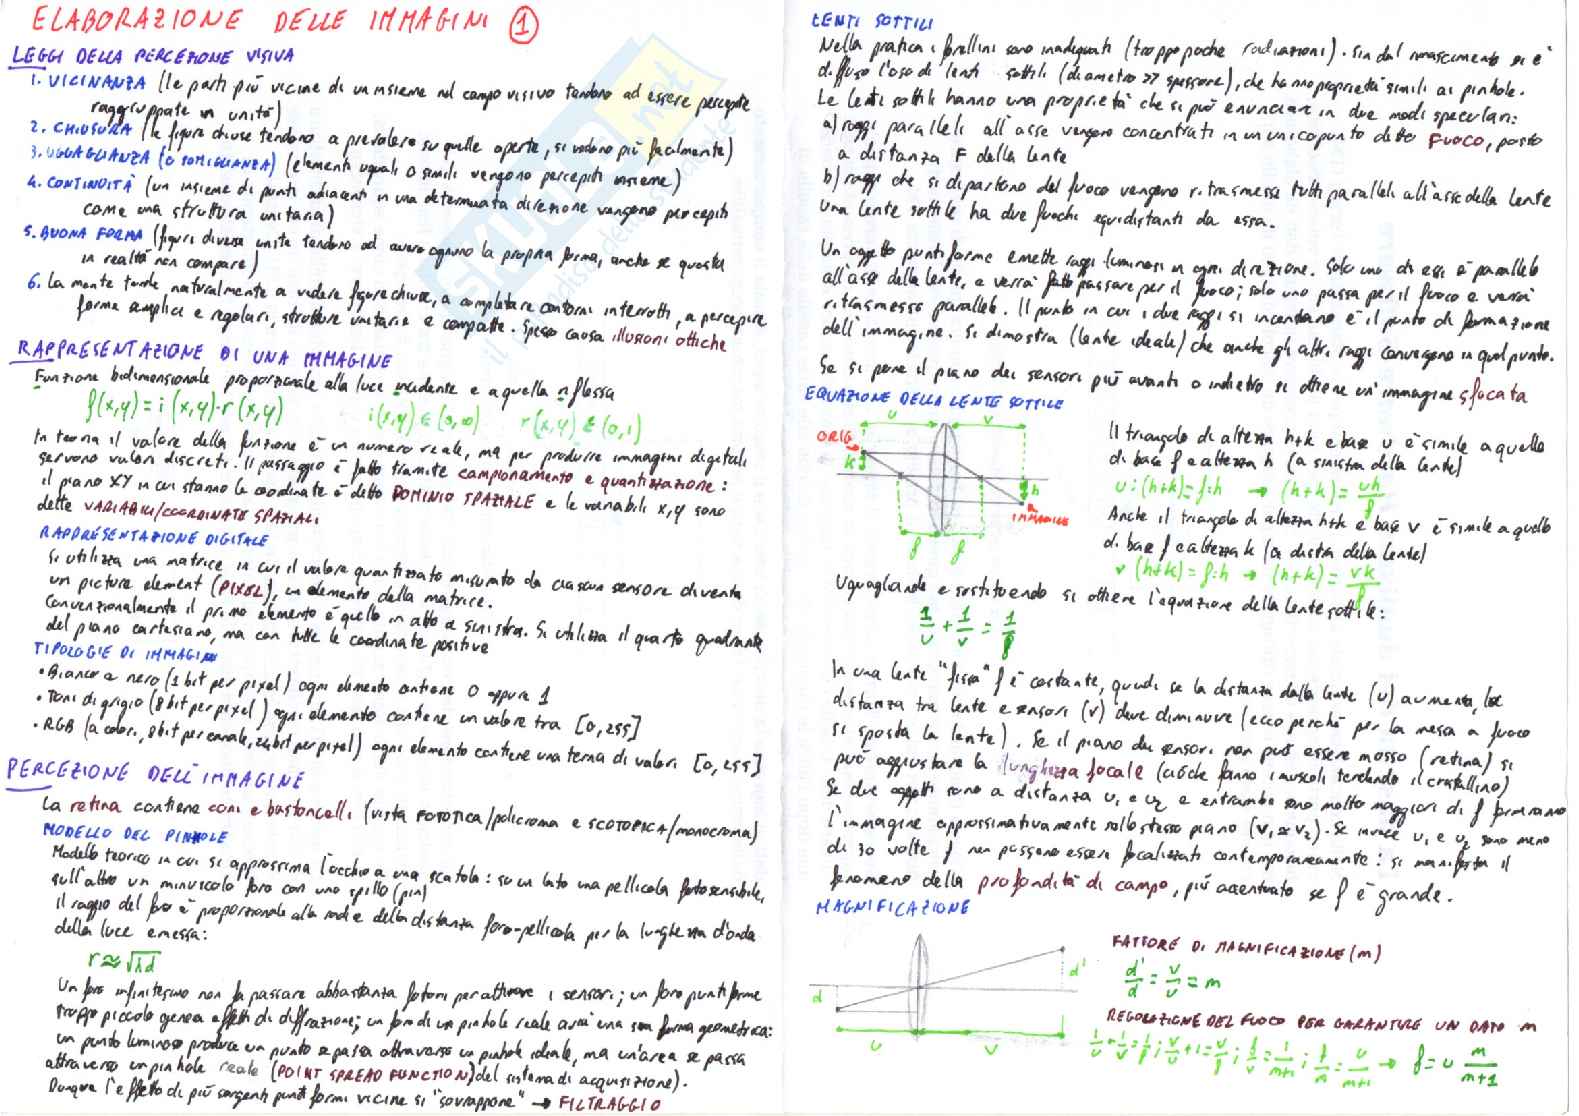 ELABORAZIONE DELLE IMMAGINI 1
LEGGI DELLA PERCEZIONE VISIVA
1. VICINANZA (le parti più vicine di un insieme nel campo visivo tendono ad essere percepite
raggruppate in unità)
2. CHIUSURA (le figure chiuse tendono a prevalere su quelle aperte, si vedono più facilmente)
3. UGUAGLIANZA (O SOMIGLIANZA) (elementi uguali o simili vengono percepiti insieme)
4. CONTINUITÀ (un insieme di punti adiacenti in una determinata direzione vengono percepiti
come una struttura unitaria)
5. BUONA FORMA (figure diverse unite tendono ad avere ognuno la propria forma, anche se questa
in realtà non compare)
6. La mente tende naturalmente a vedere figure chiuse, a completare contorni interrotti, a percepire
forme semplici e regolari, strutture unitarie e compatte. Spesso causa illusioni ottiche
RAPPRESENTAZIONE DI UNA IMMAGINE
Funzione bidimensionale proporzionale alla luce incidente e a quella riflessa
f(x,y)=i(x,y)·r(x,y) i(x,y)∈(0,∞) r(x,y)∈(0,1)
In teoria il valore della funzione è un numero reale, ma per produrre immagini digitali
servono valori discreti. Il passaggio è fatto tramite campionamento e quantizzazione:
il piano XY in cui stanno le coordinate è detto DOMINIO SPAZIALE e le variabili x,y sono
dette VARIABILI/COORDINATE SPAZIALI
RAPPRESENTAZIONE DIGITALE
Si utilizza una matrice in cui il valore quantizzato misurato da ciascun sensore diventa
un picture element (PIXEL), un elemento della matrice.
Convenzionalmente il primo elemento è quello in alto a sinistra. Si utilizza il quarto quadrante
del piano cartesiano, ma con tutte le coordinate positive
TIPOLOGIE DI IMMAGINI
• Bianco e nero (1 bit per pixel) ogni elemento contiene 0 oppure 1
• Toni di grigio (8 bit per pixel) ogni elemento contiene un valore tra [0,255]
• RGB (a colori, 8bit per canale, 24bit per pixel) ogni elemento contiene una terna di valori [0,255]
PERCEZIONE DELL'IMMAGINE
La retina contiene coni e bastoncelli (vista FOTOTICA/policroma e SCOTOPICA/monocroma)
MODELLO DEL PINHOLE
Modello teorico in cui si approssima l'occhio a una scatola: su un lato una pellicola fotosensibile,
sull'altro un minuscolo foro con uno spillo (pin)
il raggio del foro è proporzionale alla radice della distanza foro-pellicola per la lunghezza d'onda
della luce emessa:
r≈√λd
Un foro infinitesimo non fa passare abbastanza fotoni per attivare i sensori; un foro puntiforme
troppo piccolo genera effetti di diffrazione; un foro di un pinhole reale avrà una sua forma geometrica:
un punto luminoso produce un punto se passa attraverso un pinhole ideale, ma un'area se passa
attraverso un pinhole reale (POINT SPREAD FUNCTION) del sistema di acquisizione).
Dunque l'effetto di più sorgenti puntiformi vicine si "sovrappone" → FILTRAGGIO
LENTI SOTTILI
Nella pratica i forellini sono inadeguati (troppo poche radiazioni). Sin dal rinascimento si è
diffuso l'uso di lenti sottili (diametro >> spessore), che hanno proprietà simili ai pinhole.
Le lenti sottili hanno una proprietà che si può enunciare in due modi speculari:
a) raggi paralleli all'asse vengono concentrati in un unico punto detto FUOCO, posto
a distanza F della lente
b) raggi che si dipartono del fuoco vengono ritrasmessi tutti paralleli all'asse della lente
Una lente sottile ha due fuochi equidistanti da essa.
Un oggetto puntiforme emette raggi luminosi in ogni direzione. Solo uno di essi è parallelo
all'asse della lente, e verrà fatto passare per il fuoco; solo uno passa per il fuoco e verrà
ritrasmesso parallelo. Il punto in cui i due raggi si incontrano è il punto di formazione
dell'immagine. Si dimostra (lente ideale) che anche gli altri raggi convergono in quel punto.
Se si pone il piano dei sensori più avanti o indietro si ottiene un'immagine sfocata
EQUAZIONE DELLA LENTE SOTTILE
u v
ORIG.
k
h
IMMAGINE
f f
Il triangolo di altezza h+k e base u è simile a quello
di base f e altezza h (a sinistra della lente)
u:(h+k)=f:h → (h+k)=uh/f
Anche il triangolo di altezza h+k e base v è simile a quello
di base f e altezza k (a destra della lente)
v(h+k)=f:h → (h+k)=vk/f
Uguagliando e sostituendo si ottiene l'equazione della lente sottile:
1/u+1/v=1/f
In una lente "fissa" f è costante, quindi se la distanza dalla lente (u) aumenta, la
distanza tra lente e sensori (v) deve diminuire (ecco perché per la messa a fuoco
si sposta la lente). Se il piano dei sensori non può essere mosso (retina) si
può aggiustare la lunghezza focale (ciò che fanno i muscoli tendendo il cristallino)
Se due oggetti sono a distanza u₁ e u₂ e entrambe sono molto maggiori di f formeranno
l'immagine approssimativamente sullo stesso piano (v₁≈v₂). Se invece u₁ e u₂ sono meno
di 30 volte f non possono essere focalizzati contemporaneamente: si manifesta il
fenomeno della profondità di campo, più accentuato se f è grande.
MAGNIFICAZIONE
d
d'
u v
FATTORE DI MAGNIFICAZIONE (m)
d'/d=v/u=m
REGOLAZIONE DEL FUOCO PER GARANTIRE UN DATO m
1/u+1/v=1/f; v/u+1=v/f; f/v=1/m+1; f/m=u/m+1 → f=u m/m+1